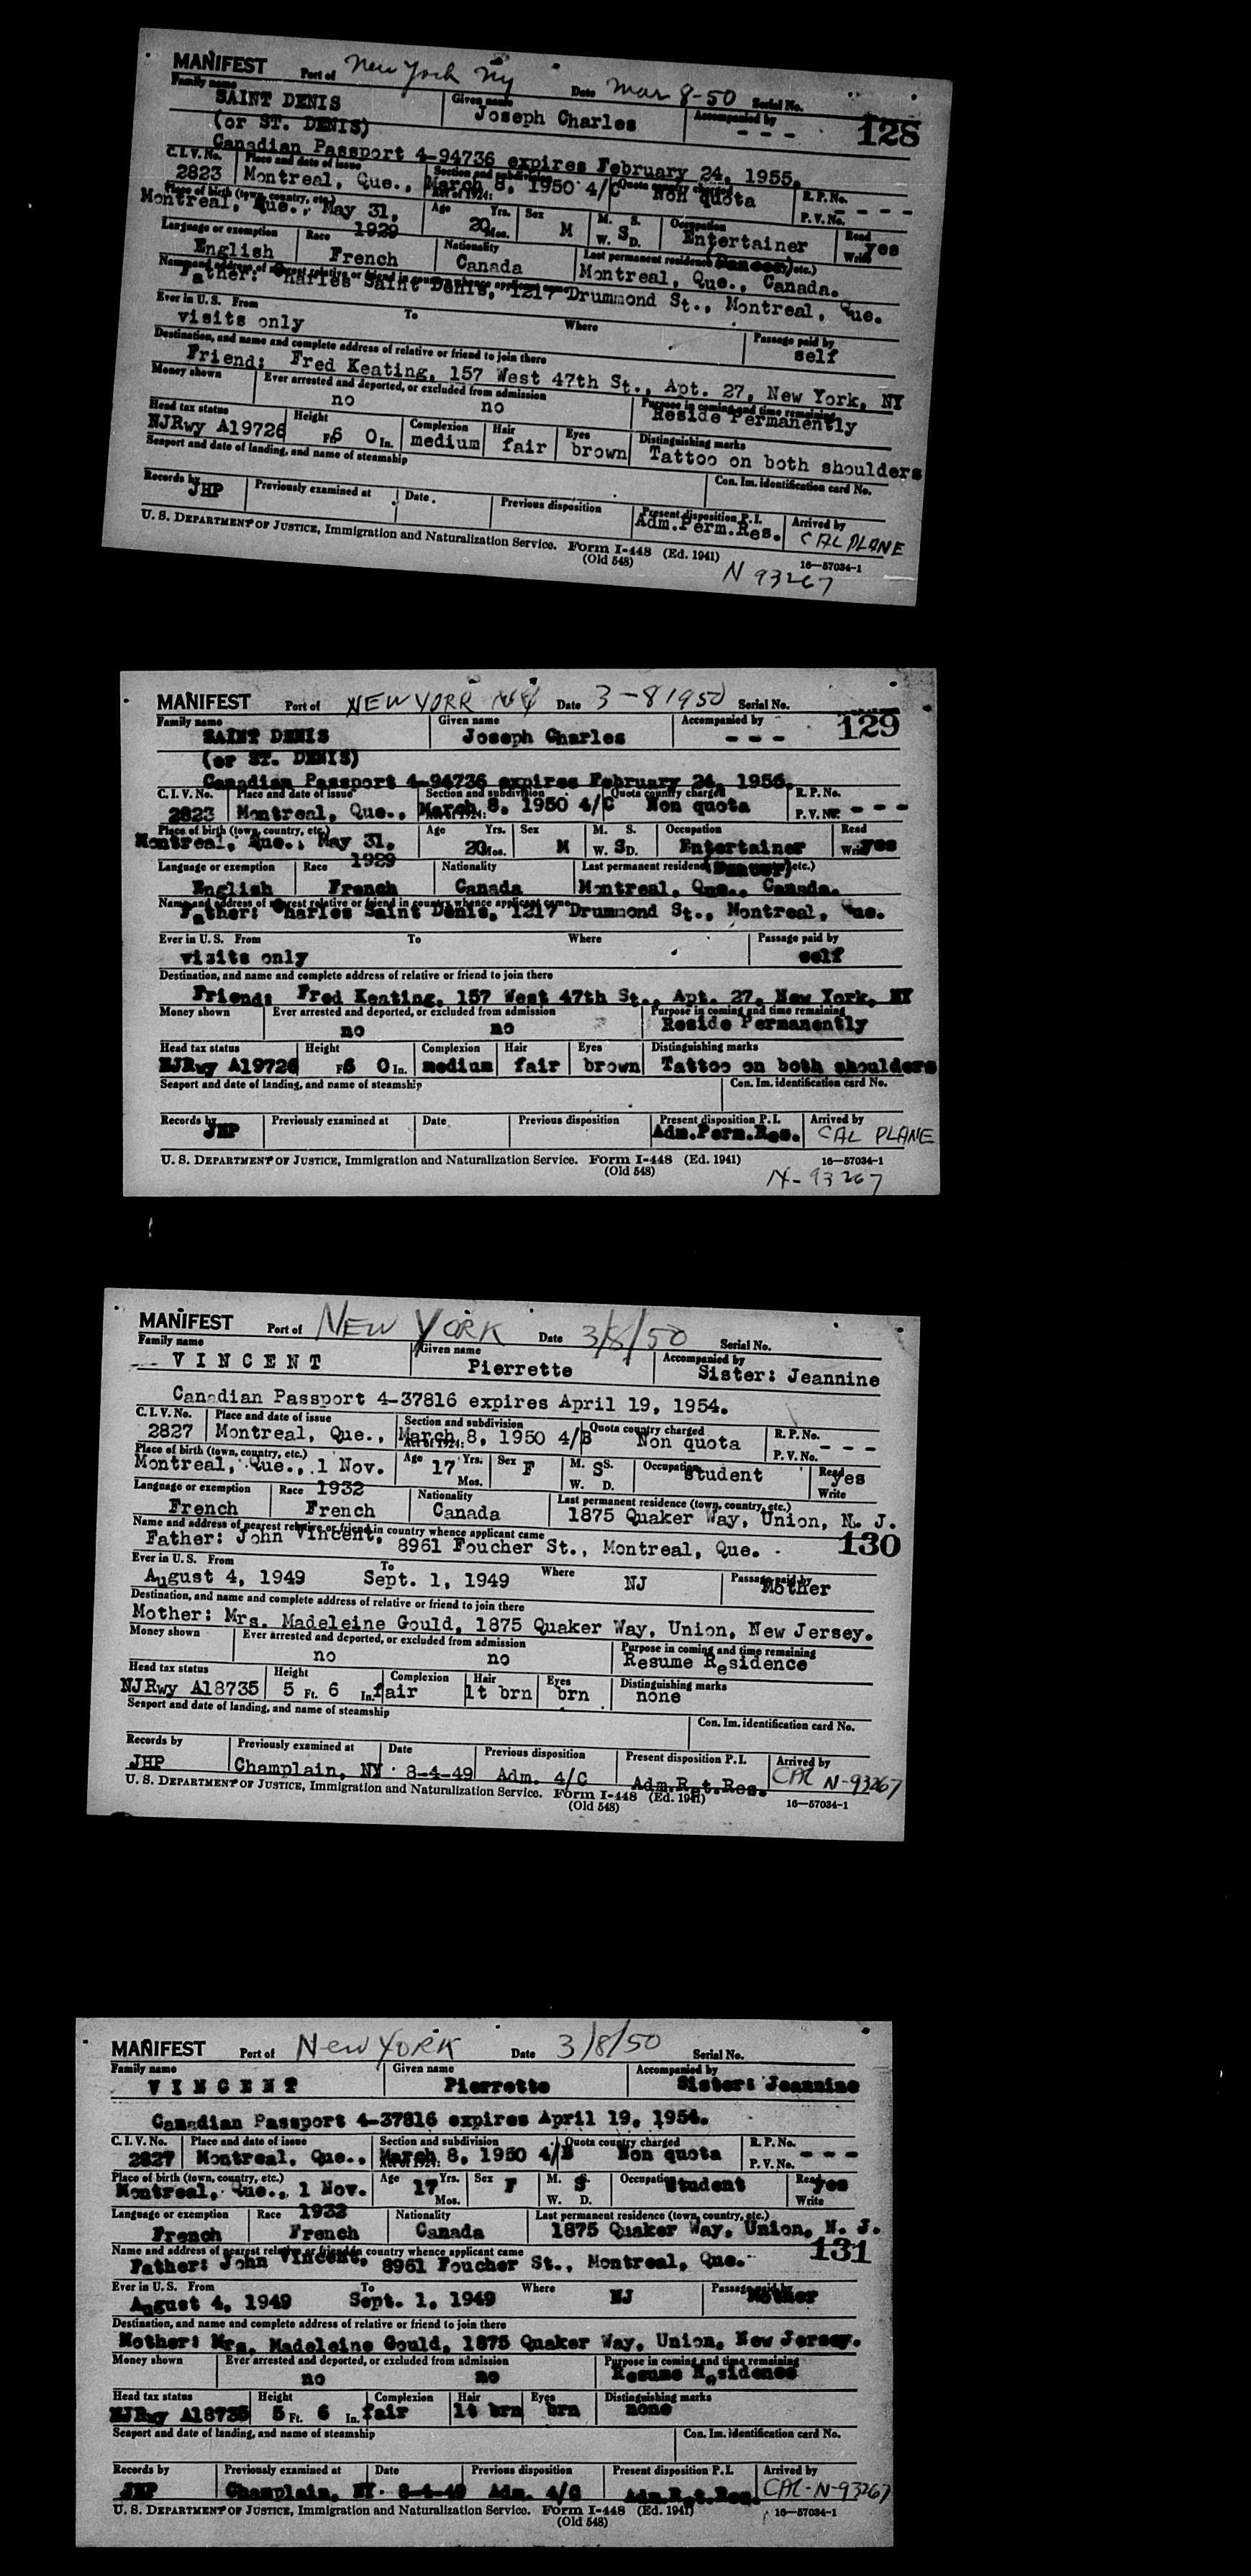 MANIFEST Port of New York NY Date Mar 8-50 Serial No.
Family name Given name Accompanied by
SAINT DENIS Joseph Charles - - - 128
(or ST. DENIS)
Canadian Passport 4-94736 expires February 24, 1955.
C.I.V. No. Place and date of issue Section and subdivision Act of 1924: Quota country charged R. P. No.
2823 Montreal, Que., March 8, 1950 4/C Non quota P. V. No. - - - -
Place of birth (town, country, etc.) Age Yrs. Sex M. S. Occupation Read
Montreal, Que., May 31, 1929 20 Mos. M W. S D. Entertainer (Dancer) Write yes
Language or exemption Race Nationality Last permanent residence (town, country, etc.)
English French Canada Montreal, Que., Canada.
Name and address of nearest relative or friend in country whence applicant came
Father: Charles Saint Denis, 1217 Drummond St., Montreal, Que.
Ever in U. S. From To Where Passage paid by
visits only self
Destination, and name and complete address of relative or friend to join there
Friend: Fred Keating, 157 West 47th St., Apt. 27, New York, NY
Money shown Ever arrested and deported, or excluded from admission Purpose in coming and time remaining
no no Reside Permanently
Head tax status Height Complexion Hair Eyes Distinguishing marks
NJRwy A19726 Ft. 6 0 In. medium fair brown Tattoo on both shoulders
Seaport and date of landing, and name of steamship Con. Im. identification card No.
Records by Previously examined at Date Previous disposition Present disposition P. I. Arrived by
JHP Adm.Perm.Res. CAL PLANE
U. S. DEPARTMENT OF JUSTICE, Immigration and Naturalization Service. Form I-448 (Ed. 1941) 16—57034-1
(Old 548)
N 93267
MANIFEST Port of NEW YORK NY Date 3-8 1950 Serial No.
Family name Given name Accompanied by
SAINT DENIS Joseph Charles - - - 129
(or ST. DENIS)
Canadian Passport 4-94736 expires February 24, 1955.
C. I. V. No. Place and date of issue Section and subdivision Act of 1924: Quota country charged R. P. No.
2823 Montreal, Que., March 8, 1950 4/C Non quota P. V. No. - - -
Place of birth (town, country, etc.) Age Yrs. Sex M. S. Occupation Read
Montreal, Que., May 31, 1929 20 Mos. M W. S D. Entertainer (Dancer) Write yes
Language or exemption Race Nationality Last permanent residence (town, country, etc.)
English French Canada Montreal, Que., Canada.
Name and address of nearest relative or friend in country whence applicant came
Father: Charles Saint Denis, 1217 Drummond St., Montreal, Que.
Ever in U. S. From To Where Passage paid by
visits only self
Destination, and name and complete address of relative or friend to join there
Friend: Fred Keating, 157 West 47th St., Apt. 27, New York, NY
Money shown Ever arrested and deported, or excluded from admission Purpose in coming and time remaining
no no Reside Permanently
Head tax status Height Complexion Hair Eyes Distinguishing marks
NJRwy A19726 Ft. 6 0 In. medium fair brown Tattoo on both shoulders
Seaport and date of landing, and name of steamship Con. Im. identification card No.
Records by Previously examined at Date Previous disposition Present disposition P. I. Arrived by
JHP Adm.Perm.Res. CAL PLANE
U. S. DEPARTMENT OF JUSTICE, Immigration and Naturalization Service. Form I-448 (Ed. 1941) 16—57034-1
(Old 548)
N-93267
MANIFEST Port of NEW YORK Date 3/8/50 Serial No.
Family name Given name Accompanied by
VINCENT Pierrette Sister: Jeannine
Canadian Passport 4-37816 expires April 19, 1954.
C. I. V. No. Place and date of issue Section and subdivision Act of 1924: Quota country charged R. P. No.
2827 Montreal, Que., March 8, 1950 4/B Non quota P. V. No. - - -
Place of birth (town, country, etc.) Age Yrs. Sex M. S. Occupation Read
Montreal, Que., 1 Nov. 1932 17 Mos. F S W. D. Student yes Write
Language or exemption Race Nationality Last permanent residence (town, country, etc.)
French French Canada 1875 Quaker Way, Union, N. J.
Name and address of nearest relative or friend in country whence applicant came 130
Father: John Vincent, 8961 Foucher St., Montreal, Que.
Ever in U. S. From To Where Passage paid by
August 4, 1949 Sept. 1, 1949 NJ Mother
Destination, and name and complete address of relative or friend to join there
Mother: Mrs. Madeleine Gould, 1875 Quaker Way, Union, New Jersey.
Money shown Ever arrested and deported, or excluded from admission Purpose in coming and time remaining
no no Resume Residence
Head tax status Height Complexion Hair Eyes Distinguishing marks
NJRwy A18735 5 Ft. 6 In. fair lt brn brn none
Seaport and date of landing, and name of steamship Con. Im. identification card No.
Records by Previously examined at Date Previous disposition Present disposition P. I. Arrived by
JHP Champlain, NY 8-4-49 Adm. 4/C Adm.Ret.Res. CAL N-93267
U. S. DEPARTMENT OF JUSTICE, Immigration and Naturalization Service. Form I-448 (Ed. 1941) 16—57034-1
(Old 548)
MANIFEST Port of New YORK Date 3/8/50 Serial No.
Family name Given name Accompanied by
VINCENT Pierrette Sister: Jeannine
Canadian Passport 4-37816 expires April 19, 1954.
C. I. V. No. Place and date of issue Section and subdivision Act of 1924: Quota country charged R. P. No.
2827 Montreal, Que., March 8, 1950 4/B Non quota P. V. No. - - -
Place of birth (town, country, etc.) Age Yrs. Sex M. S. Occupation Read
Montreal, Que., 1 Nov. 1932 17 Mos. F S W. D. Student yes Write
Language or exemption Race Nationality Last permanent residence (town, country, etc.)
French French Canada 1875 Quaker Way, Union, N. J.
Name and address of nearest relative or friend in country whence applicant came 131
Father: John Vincent, 8961 Foucher St., Montreal, Que.
Ever in U. S. From To Where Passage paid by
August 4, 1949 Sept. 1, 1949 NJ Mother
Destination, and name and complete address of relative or friend to join there
Mother: Mrs. Madeleine Gould, 1875 Quaker Way, Union, New Jersey.
Money shown Ever arrested and deported, or excluded from admission Purpose in coming and time remaining
no no Resume Residence
Head tax status Height Complexion Hair Eyes Distinguishing marks
NJRwy A18735 5 Ft. 6 In. fair lt brn brn none
Seaport and date of landing, and name of steamship Con. Im. identification card No.
Records by Previously examined at Date Previous disposition Present disposition P. I. Arrived by
JHP Champlain, NY 8-4-49 Adm. 4/C Adm.Ret.Res. CAL-N-93267
U. S. DEPARTMENT OF JUSTICE, Immigration and Naturalization Service. Form I-448 (Ed. 1941) 16—57034-1
(Old 548)